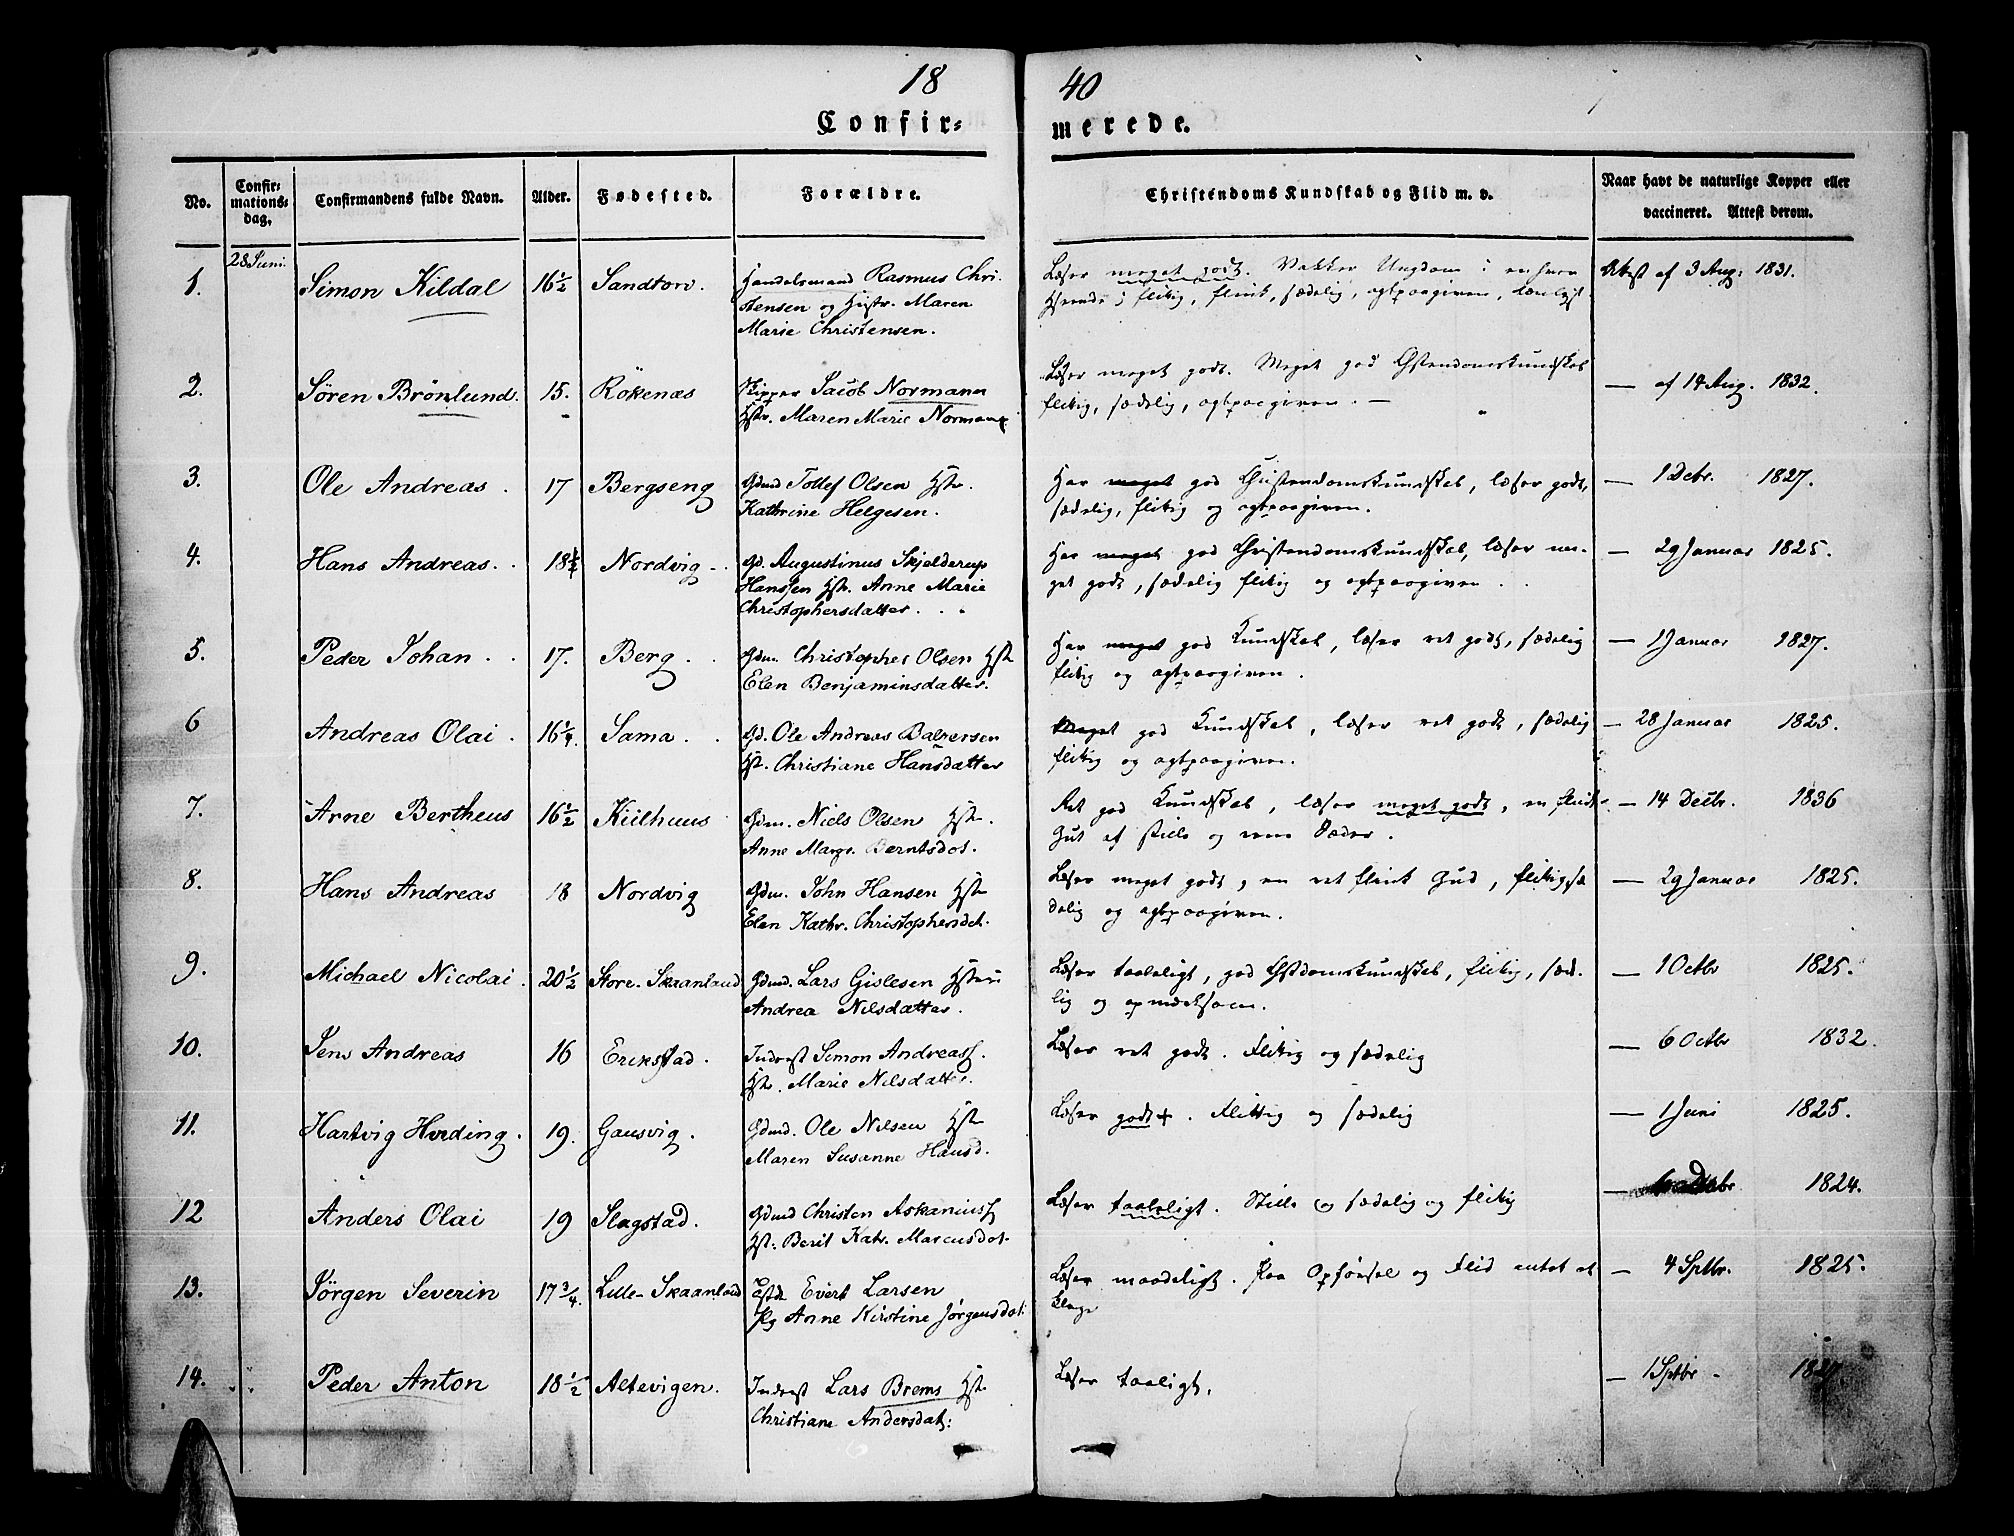 18 40
Confir= merede.
No. Confir= mations= dag. Confirmandens fulde Navn. Alder. Fødested. Forældre. Christendoms Kundskab og Flid m. v. Naar havt de naturlige Kopper eller vaccineret. Attest derom.
28 Juni.
1. Simon Kildal 16 1/2 Sandtorv. Handelsmand Rasmus Chri- Læser meget godt. Vakker Ungdom i enhver Attest af 3 Aug: 1831.
stensen og Hustr. Maren flitig, flink, sædelig, agtpaagiven,
Marie Christensen.
2. Søren Brönlund. 15. Rökenæs Skipper Jacob Normann Læser meget godt. Meget god Christendomskundskab — af 14 Aug. 1832.
Hstr. Maren Marie Normann flitig, sædelig, agtpaagiven. —
3. Ole Andreas. 17 Bergseng Gdmd Tollef Olsen Hstr. Har meget god Christendomskundskab, læser godt, — 1 Debr. 1827.
Kathrine Helgesen. sædelig, flitig og agtpaagiven.
4. Hans Andreas. 18 1/4 Nordvig Gd. Augustinus Skjelderup Har meget god Christendomskundskab, læser me- — 29 Januar 1825.
Hanssen Hstr. Anne Marie get godt, sædelig flitig og agtpaagiven.
Christophersdatter.
5. Peder Johan. 17. Berg. Gdm. Christopher Olsen Hstr Har meget god Kundskab, læser ret godt, sædelig — 1 Januar 1827.
Elen Benjaminsdatter. flitig og agtpaagiven.
6 Andreas Olai. 16 1/4. Sama. Gd. Ole Andreas Balzersen Meget god Kundskab, læser ret godt, sædelig — 28 Januar 1825.
Hst. Christiane Hansdatter flitig og agtpaagiven.
7. Arne Bertheus 16 1/2 Kiilhuus Gdm. Niels Olsen Hstr. Ret god Kundskab, læser meget godt, en — 14 Decbr. 1836
Anne Margr. Berntsdot. Gut af stille og rene Sæder.
8. Hans Andreas 18 Nordvig Gdm. John Hansen Hstr Læser meget godt, en ret flink Gud, flitig, sæ — 29 Januar 1825.
Elen Kathr. Christophersdat. delig og agtpaagiven.
9. Michael Nicolai. 20 1/2 Store-Skaanland Gdmd. Lars Gislesen Hstru Læser taaleligt, god Chstdomskundskab, flitig, sæd- — 1 Octbr 1825.
Andrea Nilsdatter. lig og opmærksom.
10. Jens Andreas 16 Erikstad. Inderst Simon Andreass. Læser ret godt. Flitig og sædelig — 6 Octbr 1832.
Hstr. Marie Nilsdatter.
11. Hartvig Hveding. 19. Gausvig. Gdmd. Ole Nilsen Hstr Læser godt +. Flittig og sædelig — 1 Juni 1825.
Maren Susanne Hansd.
12 Anders Olai 19 Slagstad. Gdmd Christen Askaniuss Læser taaleligt. Stille og sædelig og flitig — 1824.
Hst. Berit Katr. Marcusdot.
13. Jörgen Severin 17 3/4. Lille-Skaanland Evert Larsen Læser maadeligt. Paa Opførsel og Flid intet at — 4 Septbr. 1825.
Pg Anne Kirstine Jørgensdat. klage
14. Peder Anton 18 1/2 Altevigen. Inderst Lars Brems Hstr Læser taaligt. — 1 Septbr
Christiane Andersdat: